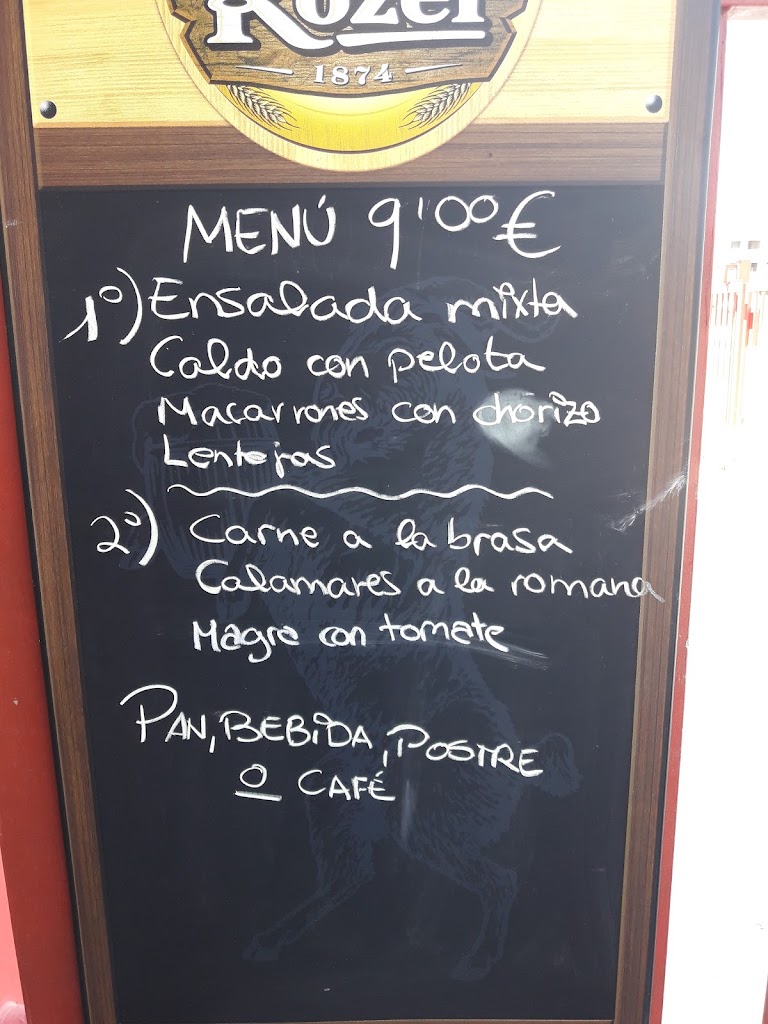 Kozel
1874
MENÚ 9'00€
1º) Ensalada mixta
Caldo con pelota
Macarrones con chorizo
Lentejas
2º) Carne a la brasa
Calamares a la romana
Magre con tomate
PAN, BEBIDA, POSTRE
O CAFÉ